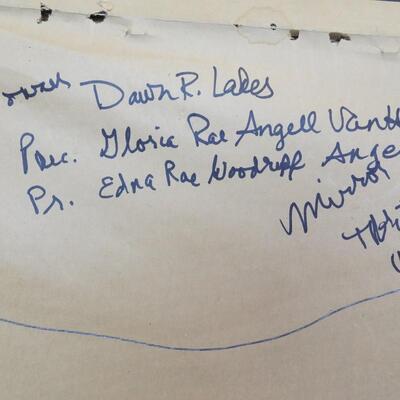 Dawn R. Lakes
Prec. Gloria Rae Angell Van
Pr. Edna Rae Woodruff Ange
Mirror